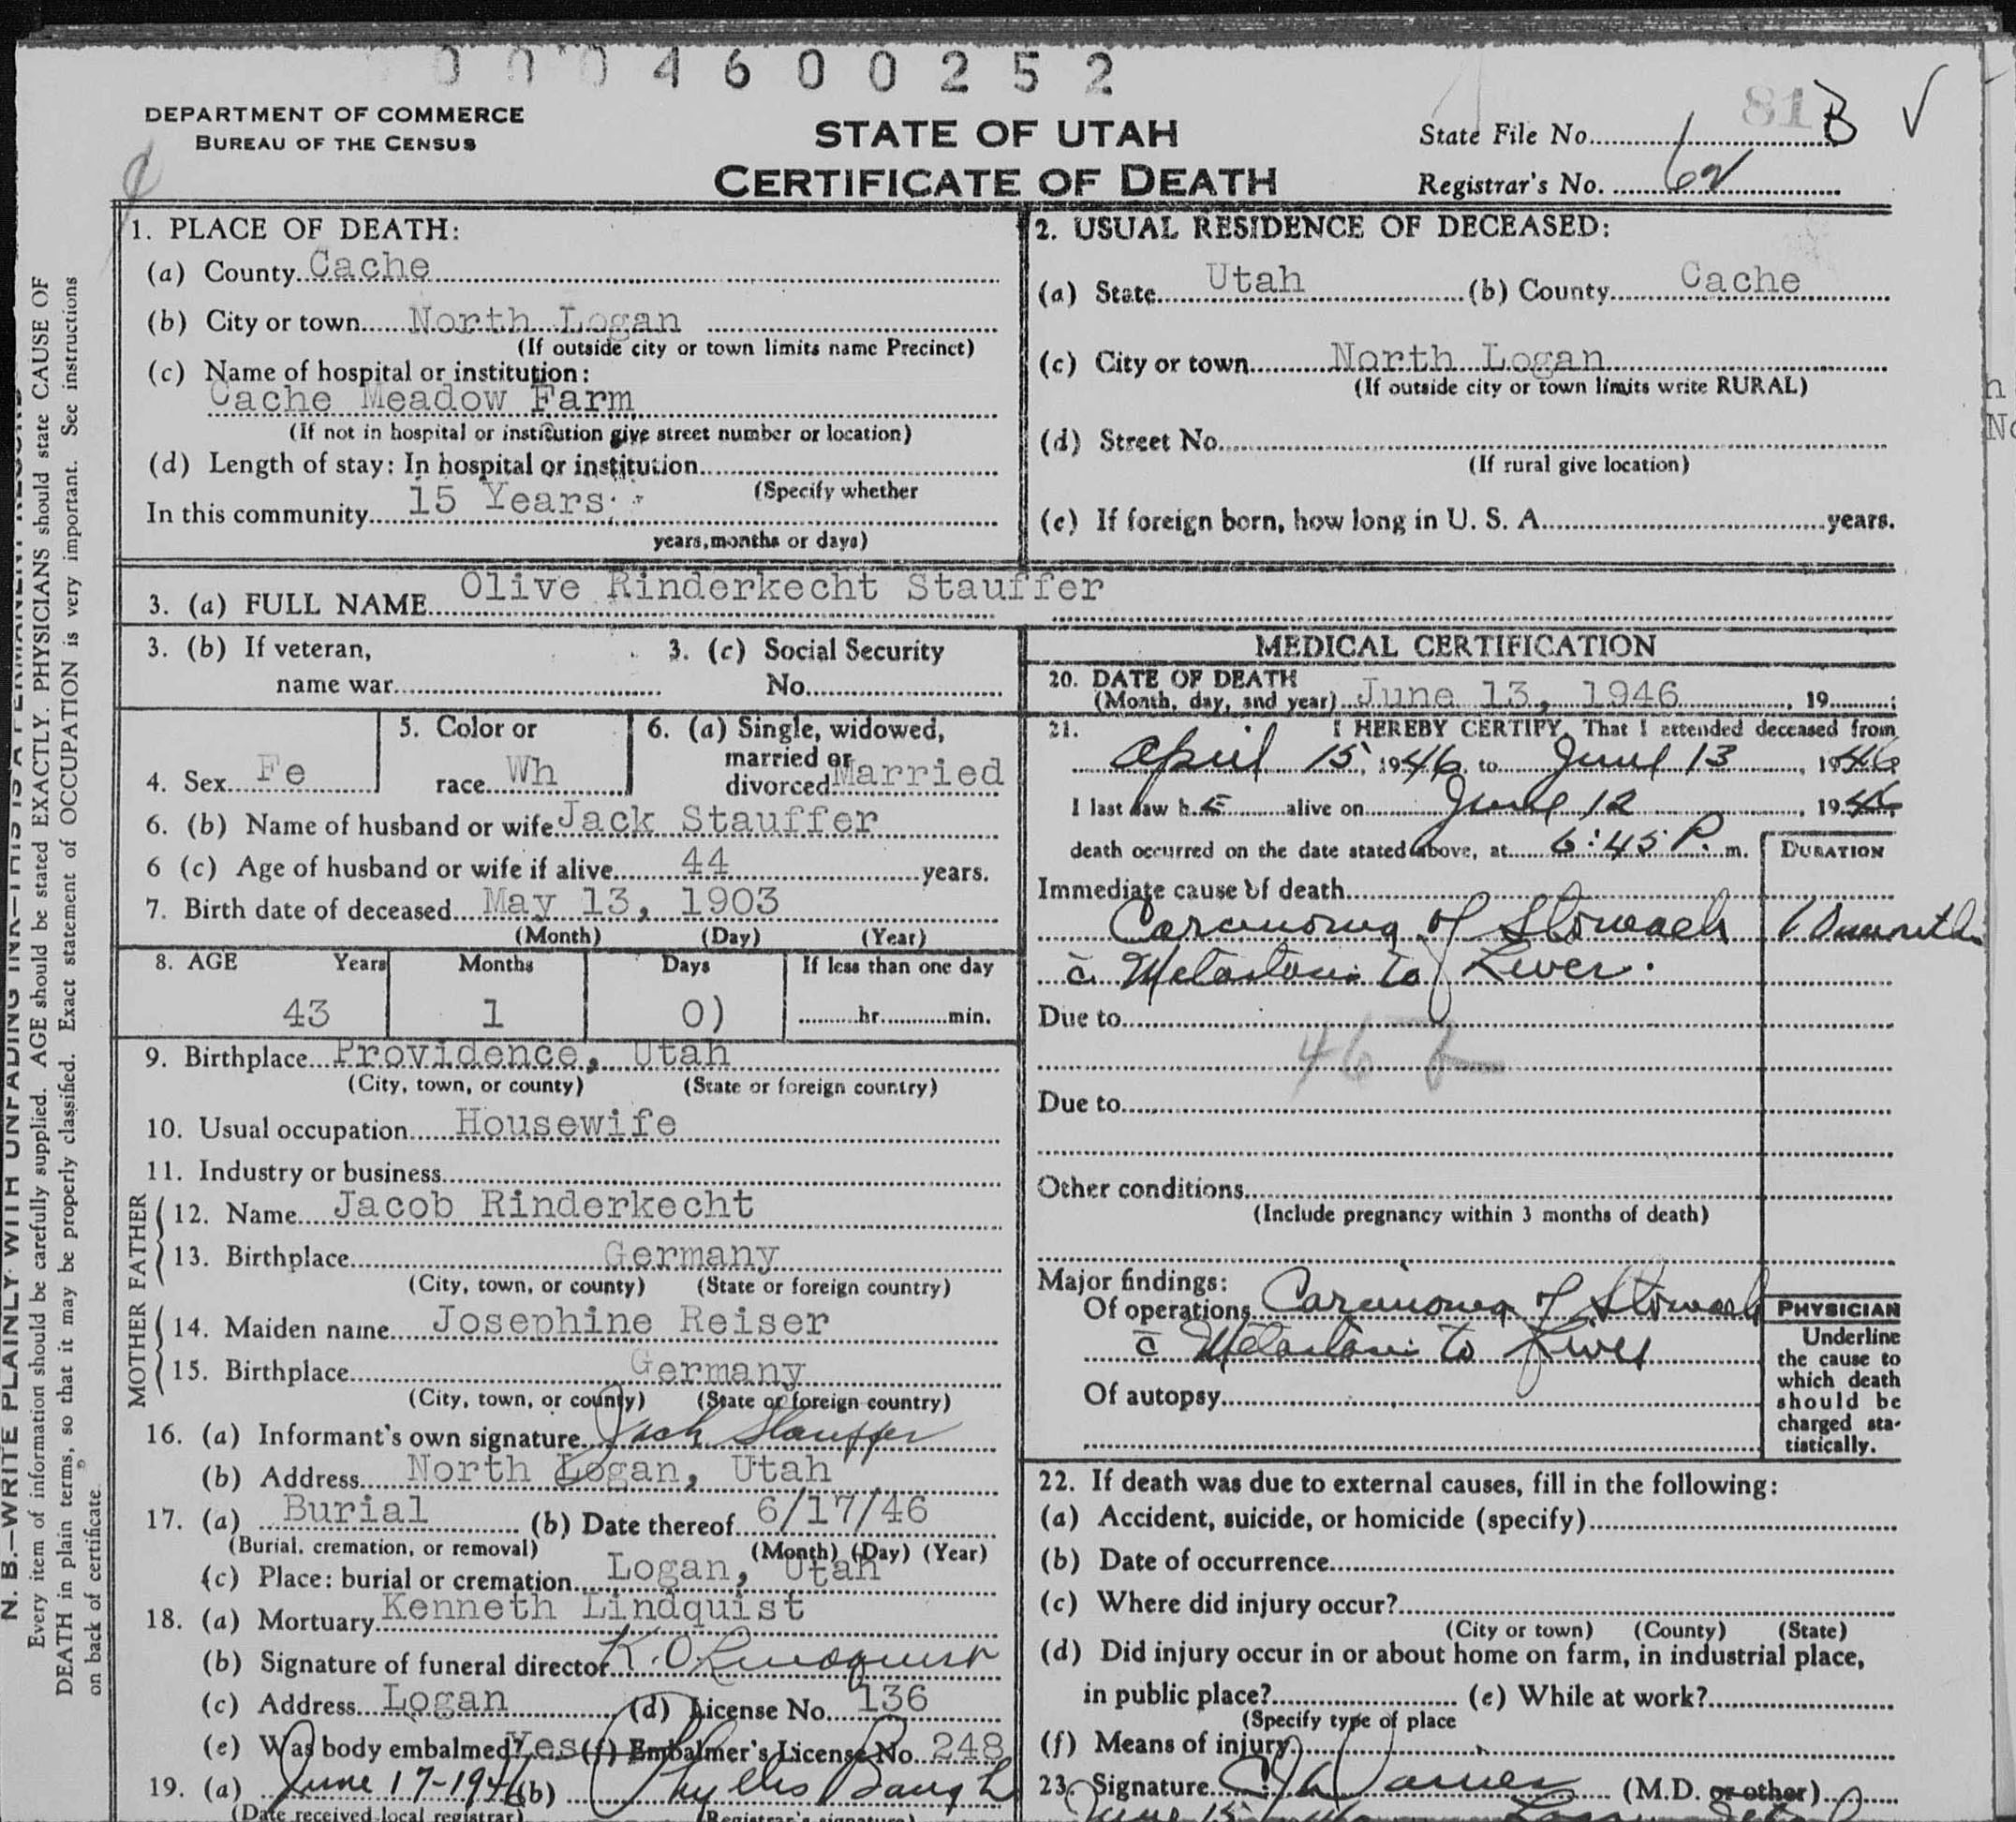 0004600252
DEPARTMENT OF COMMERCE
BUREAU OF THE CENSUS
STATE OF UTAH
CERTIFICATE OF DEATH
State File No. 81 B ✓
Registrar's No. 62
1. PLACE OF DEATH:
(a) County Cache
(b) City or town North Logan
(If outside city or town limits name Precinct)
(c) Name of hospital or institution:
Cache Meadow Farm
(If not in hospital or institution give street number or location)
(d) Length of stay: In hospital or institution
(Specify whether
In this community 15 Years
years, months or days)
2. USUAL RESIDENCE OF DECEASED:
(a) State Utah (b) County Cache
(c) City or town North Logan
(If outside city or town limits write RURAL)
(d) Street No.
(If rural give location)
(e) If foreign born, how long in U. S. A. years.
3. (a) FULL NAME Olive Rinderkecht Stauffer
3. (b) If veteran,
name war
3. (c) Social Security
No.
4. Sex Fe
5. Color or
race Wh
6. (a) Single, widowed,
married or
divorced Married
6. (b) Name of husband or wife Jack Stauffer
6 (c) Age of husband or wife if alive 44 years.
7. Birth date of deceased May 13, 1903
(Month) (Day) (Year)
8. AGE Years Months Days If less than one day
43 1 0) hr. min.
9. Birthplace Providence, Utah
(City, town, or county) (State or foreign country)
10. Usual occupation Housewife
11. Industry or business
FATHER
12. Name Jacob Rinderkecht
13. Birthplace Germany
(City, town, or county) (State or foreign country)
MOTHER
14. Maiden name Josephine Reiser
15. Birthplace Germany
(City, town, or county) (State or foreign country)
16. (a) Informant's own signature Jack Stauffer
(b) Address North Logan, Utah
17. (a) Burial (b) Date thereof 6/17/46
(Burial, cremation, or removal) (Month) (Day) (Year)
(c) Place: burial or cremation Logan, Utah
18. (a) Mortuary Kenneth Lindquist
(b) Signature of funeral director K. O. Lindquist
(c) Address Logan (d) License No. 136
(e) Was body embalmed? Yes (f) Embalmer's License No. 248
19. (a) June 17-1946 (b) Phyllis
(Date received local registrar) (Registrar's signature)
MEDICAL CERTIFICATION
20. DATE OF DEATH
(Month, day, and year) June 13, 1946, 19 ;
21. I HEREBY CERTIFY, That I attended deceased from
April 15, 1946, to June 13, 1946
I last saw h alive on June 12, 1946;
death occurred on the date stated above, at 6:45 P. m.
DURATION
Immediate cause of death
Carcinoma of Stomach
c̄ Metastasis to Liver.
Due to
46 b
Due to
Other conditions
(Include pregnancy within 3 months of death)
Major findings:
Of operations Carcinoma of Stomach
c̄ Metastasis to Liver
Of autopsy
PHYSICIAN
Underline
the cause to
which death
should be
charged sta-
tistically.
22. If death was due to external causes, fill in the following:
(a) Accident, suicide, or homicide (specify)
(b) Date of occurrence
(c) Where did injury occur?
(City or town) (County) (State)
(d) Did injury occur in or about home on farm, in industrial place,
in public place? (e) While at work?
(Specify type of place
(f) Means of injury
23. Signature (M.D. or other)
N. B.—WRITE PLAINLY WITH UNFADING INK—THIS IS A PERMANENT RECORD
Every item of information should be carefully supplied. AGE should be stated EXACTLY. PHYSICIANS should state CAUSE OF
DEATH in plain terms, so that it may be properly classified. Exact statement of OCCUPATION is very important. See instructions
on back of certificate.